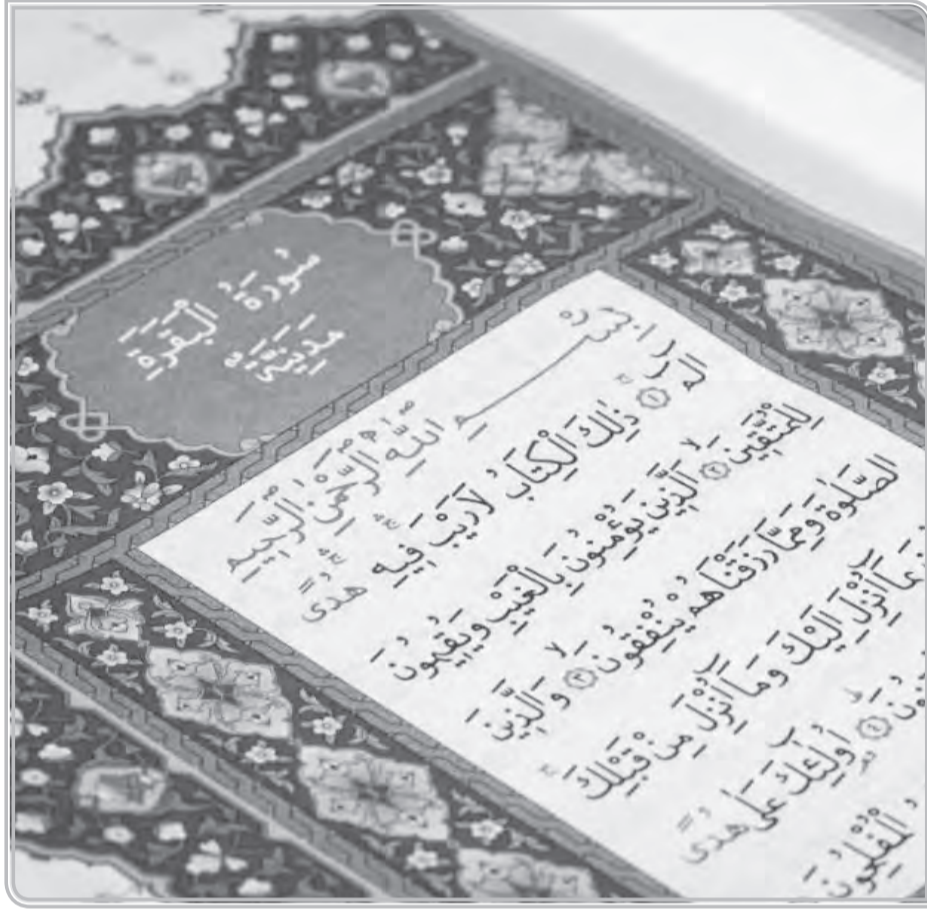 سُورَةُ الْبَقَرَةِ
مَدَنِيَّةٌ
بِسْمِ اللّٰهِ الرَّحْمٰنِ الرَّحِيمِ
الٓمٓ ۚ ﴿١﴾ ذٰلِكَ الْكِتَابُ لَا رَيْبَ ۛ فِيهِ ۛ هُدًى
لِلْمُتَّقِينَ ۙ ﴿٢﴾ اَلَّذِينَ يُؤْمِنُونَ بِالْغَيْبِ وَيُقِيمُونَ
الصَّلٰوةَ وَمِمَّا رَزَقْنَاهُمْ يُنْفِقُونَ ۙ ﴿٣﴾ وَالَّذِينَ
بِمَٓا اُنْزِلَ اِلَيْكَ وَمَٓا اُنْزِلَ مِنْ قَبْلِكَ ۚ
﴿٤﴾ اُو۬لٰٓئِكَ عَلٰى هُدًى
الْمُفْلِحُونَ